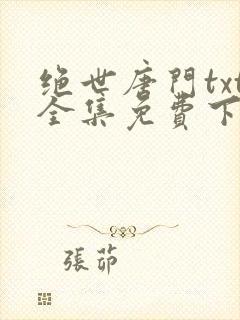 绝世唐門txt
全集免費下
張茆